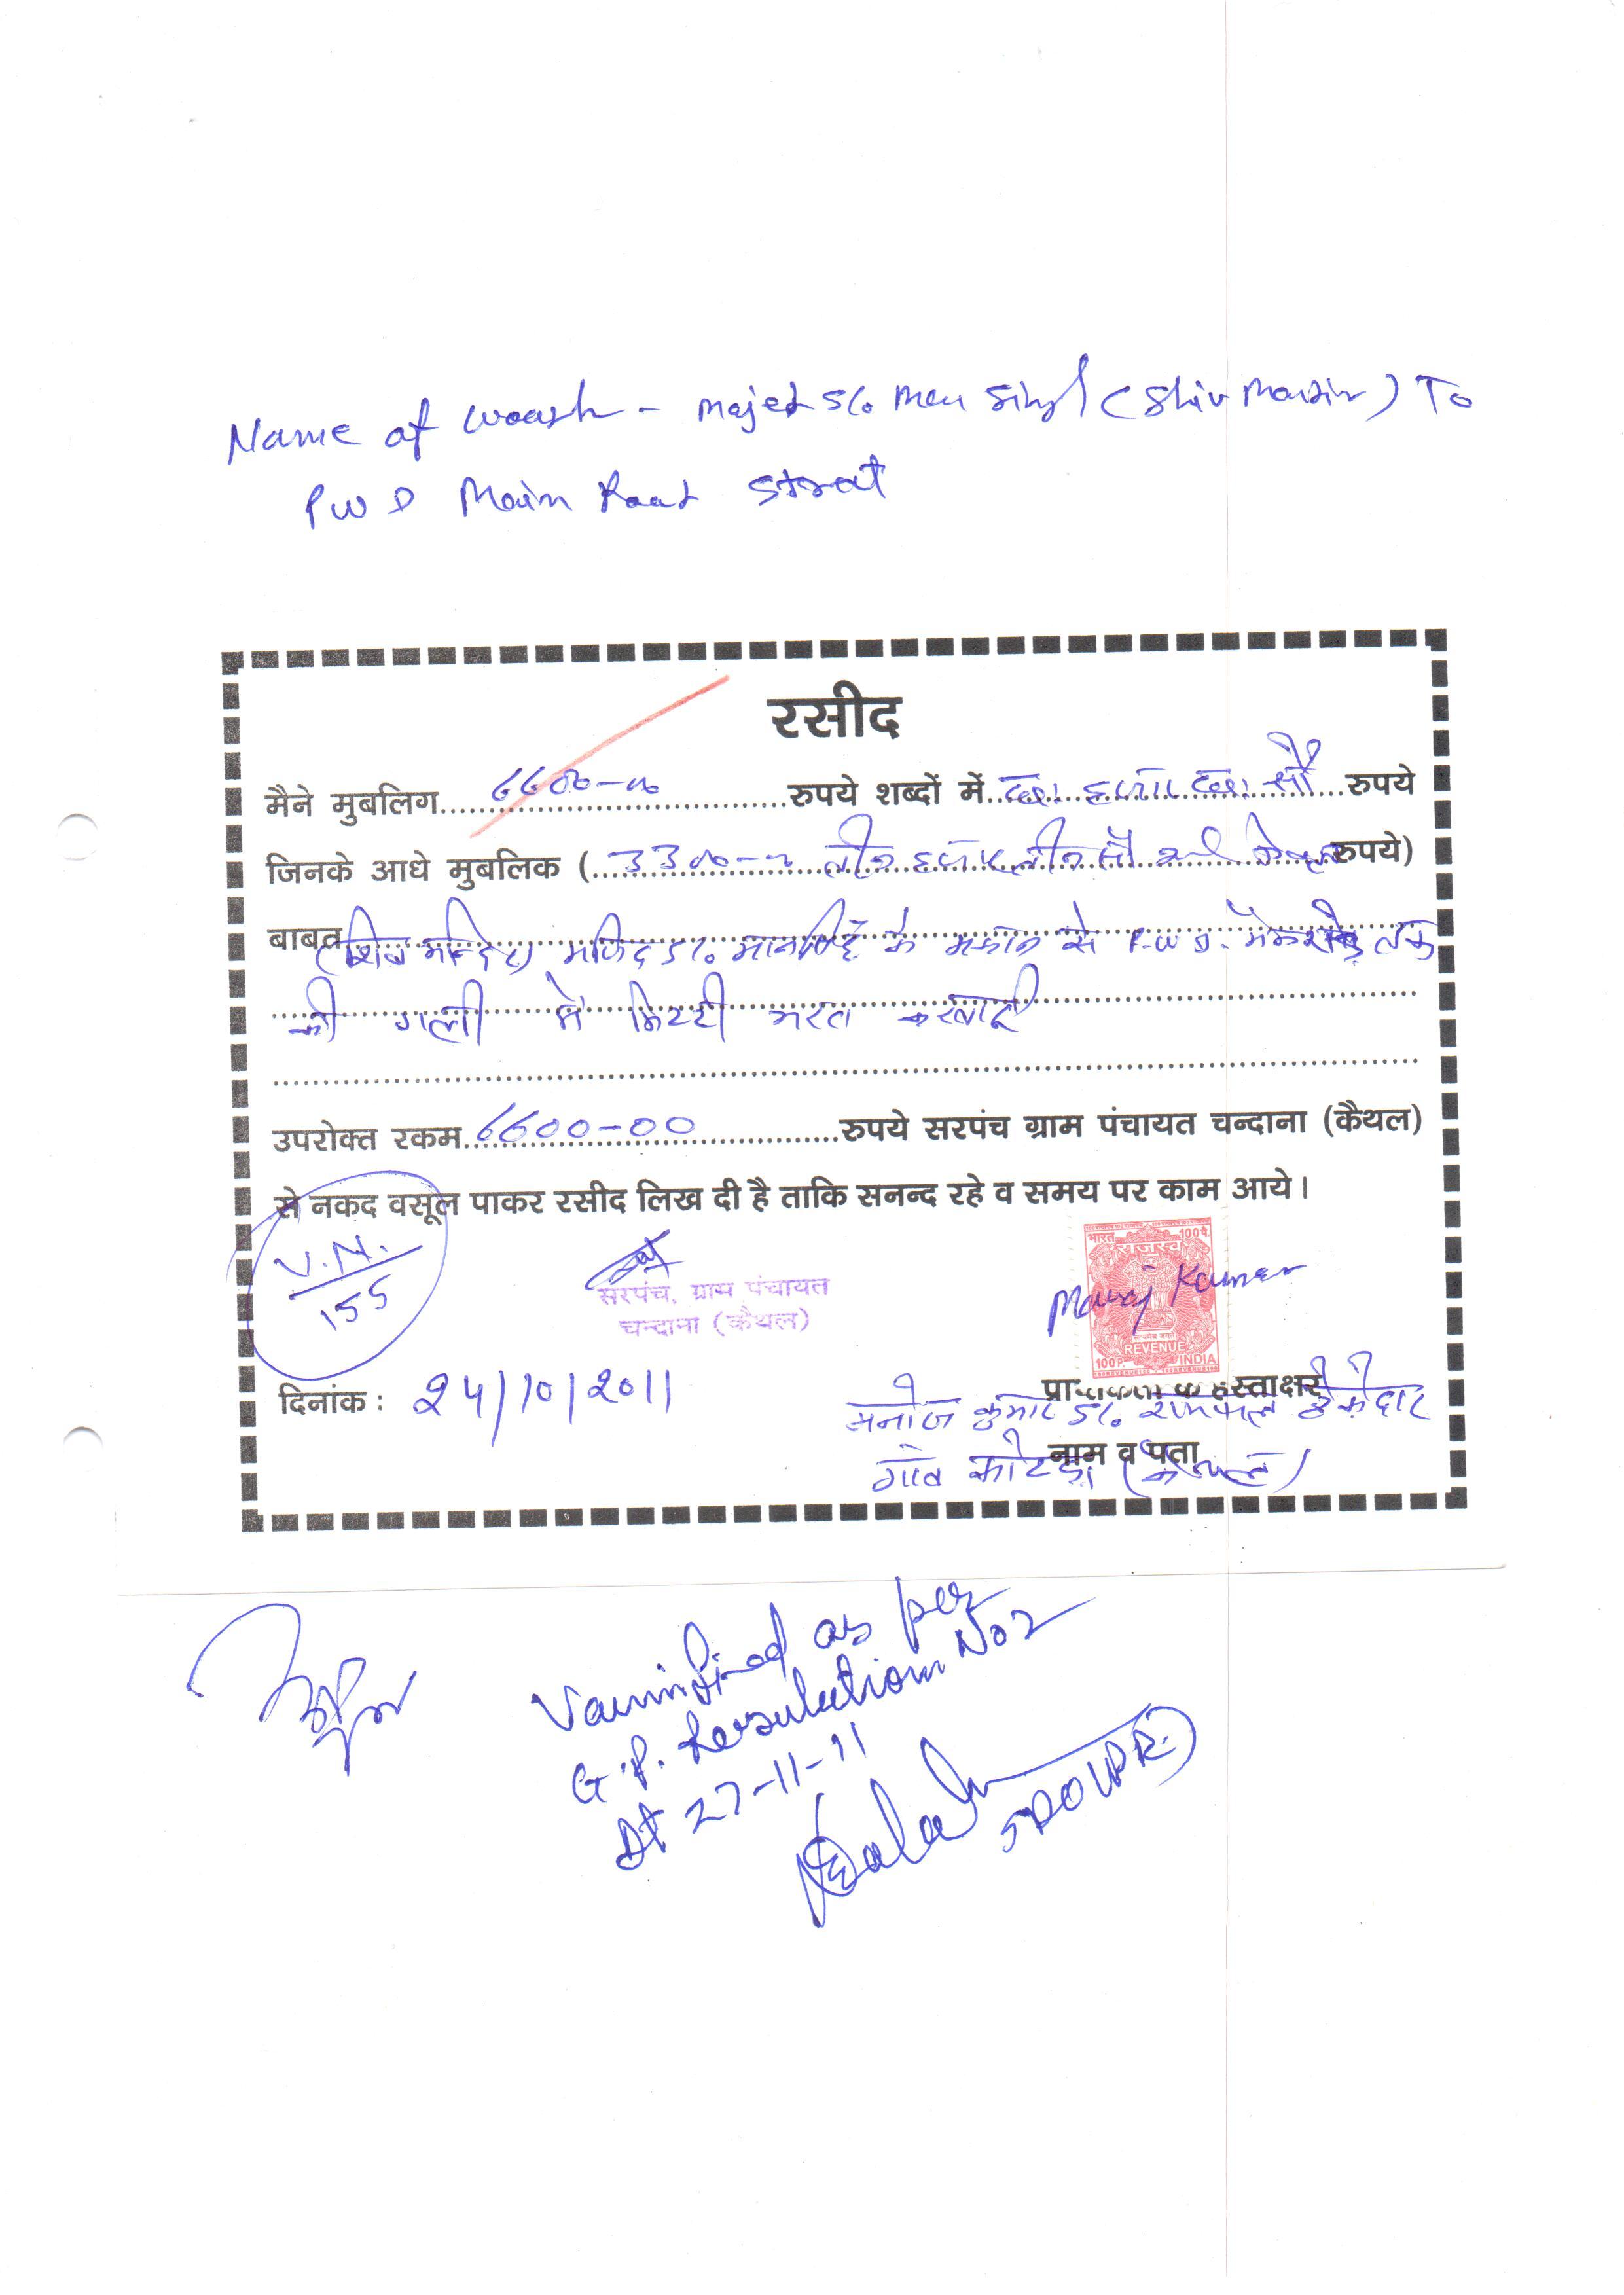 Name of woark - Majed S/o Man Singh (Shiv Mandir) To
PWD Main Road Street
रसीद
मैने मुबलिग 6600-00 रुपये शब्दों में छः हजार छः सौ रुपये
जिनके आधे मुबलिक (3300-00 तीन हजार तीन सौ रुपये)
बाबत (शिव मन्दिर) मजिद S/o मानसिंह के मकान से P.W.D. मेन रोड़ तक
की गली में मिटटी भरत करवाई
उपरोक्त रकम 6600-00 रुपये सरपंच ग्राम पंचायत चन्दाना (कैथल)
से नकद वसूल पाकर रसीद लिख दी है ताकि सनन्द रहे व समय पर काम आये।
V.N.
155
सरपंच, ग्राम पंचायत
चन्दाना (कैथल)
भारत 100पै.
राजस्व
सत्यमेव जयते
REVENUE
100P. INDIA
Manoj Kumar
दिनांक : 24/10/2011
प्राप्तकर्ता के हस्ताक्षर
मनोज कुमार S/o रामपाल ठेकेदार
नाम व पता
गांव कोटड़ा (कैथल)
Varinfied as per
G.P. Resulution No 2
Dt 27-11-11
SDO (PR)